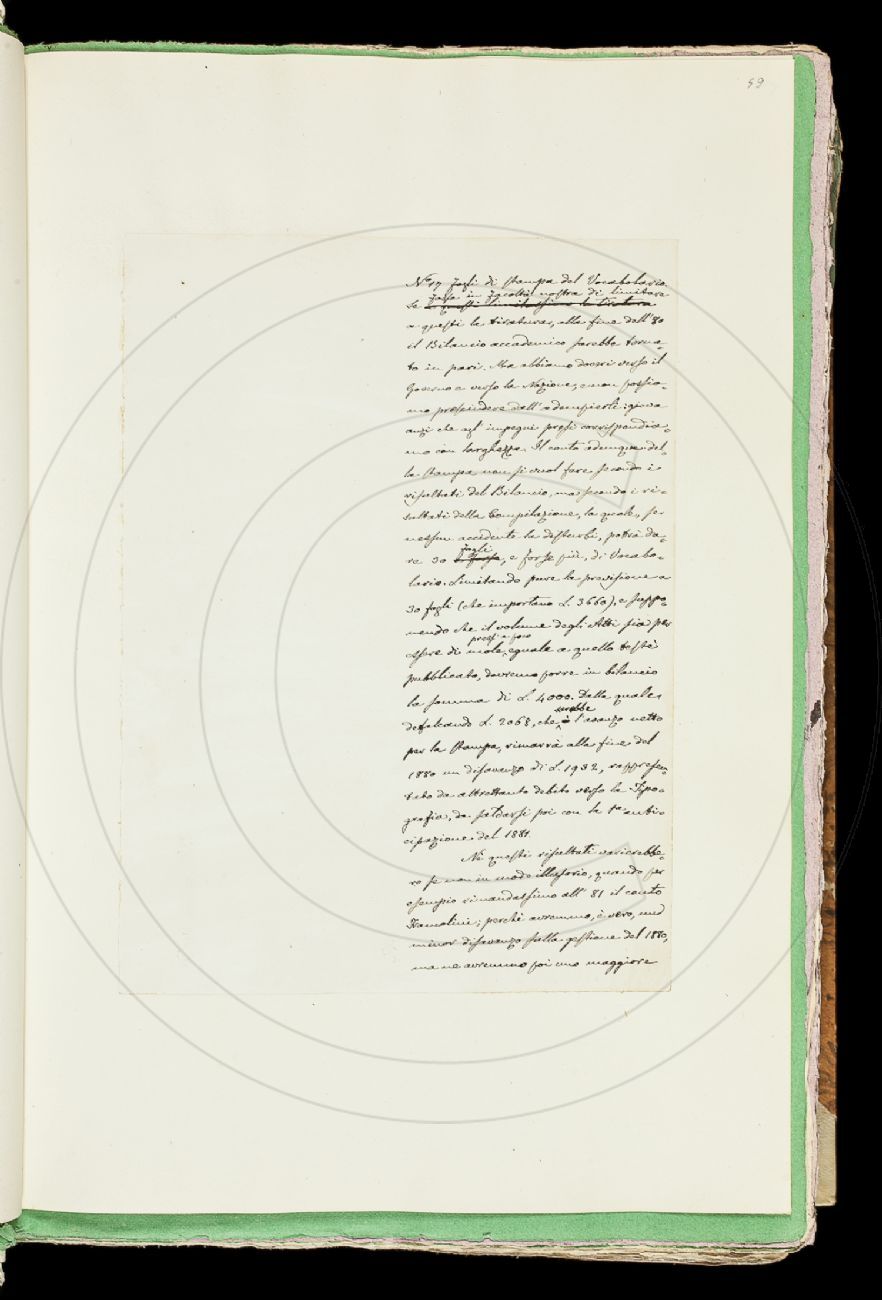 59
N.º 17 fogli di stampa del Vocabolario.
fosse in facoltà nostra di limitare
Se a questi limitassimo la tiratura
a questi la tiratura, alla fine dell'80
il Bilancio accademico sarebbe torna-
to in pari. Ma abbiamo doveri verso il
Governo e verso la Nazione, e non possia-
mo prescindere dall'adempierli: giova
anzi che agl'impegni presi corrispondia-
mo con larghezza. Il conto adunque del-
la stampa non si vuol fare secondo i
risultati del Bilancio, ma secondo i ri-
sultati della Compilazione, la quale, se
nessun accidente la disturbi, potrà da-
fogli
re 30 e forse, e forse più, di Vocabo-
lario. Limitando pure la previsione a
30 fogli (che importano L. 3660), e suppo-
nendo che il volume degli Atti sia per
press'a poco
essere di mole eguale a quello testè
pubblicato, dovremo porre in bilancio
la somma di L. 4000. Dalla quale
sarebbe
defalcando L. 2068, che è l'avanzo netto
per la stampa, rimarrà alla fine del
1880 un disavanzo di L. 1932, rappresen-
tato da altrettanto debito verso la Tipo-
grafia, da saldarsi poi con la 1ª antici-
cipazione del 1881.
Nè questi risultati varierebbe-
ro se non in modo illusorio, quando per
esempio rimandassimo all'81 il conto
perchè avremmo, è vero, un
minor disavanzo sulla gestione del 1880,
ma ne avremmo poi uno maggiore